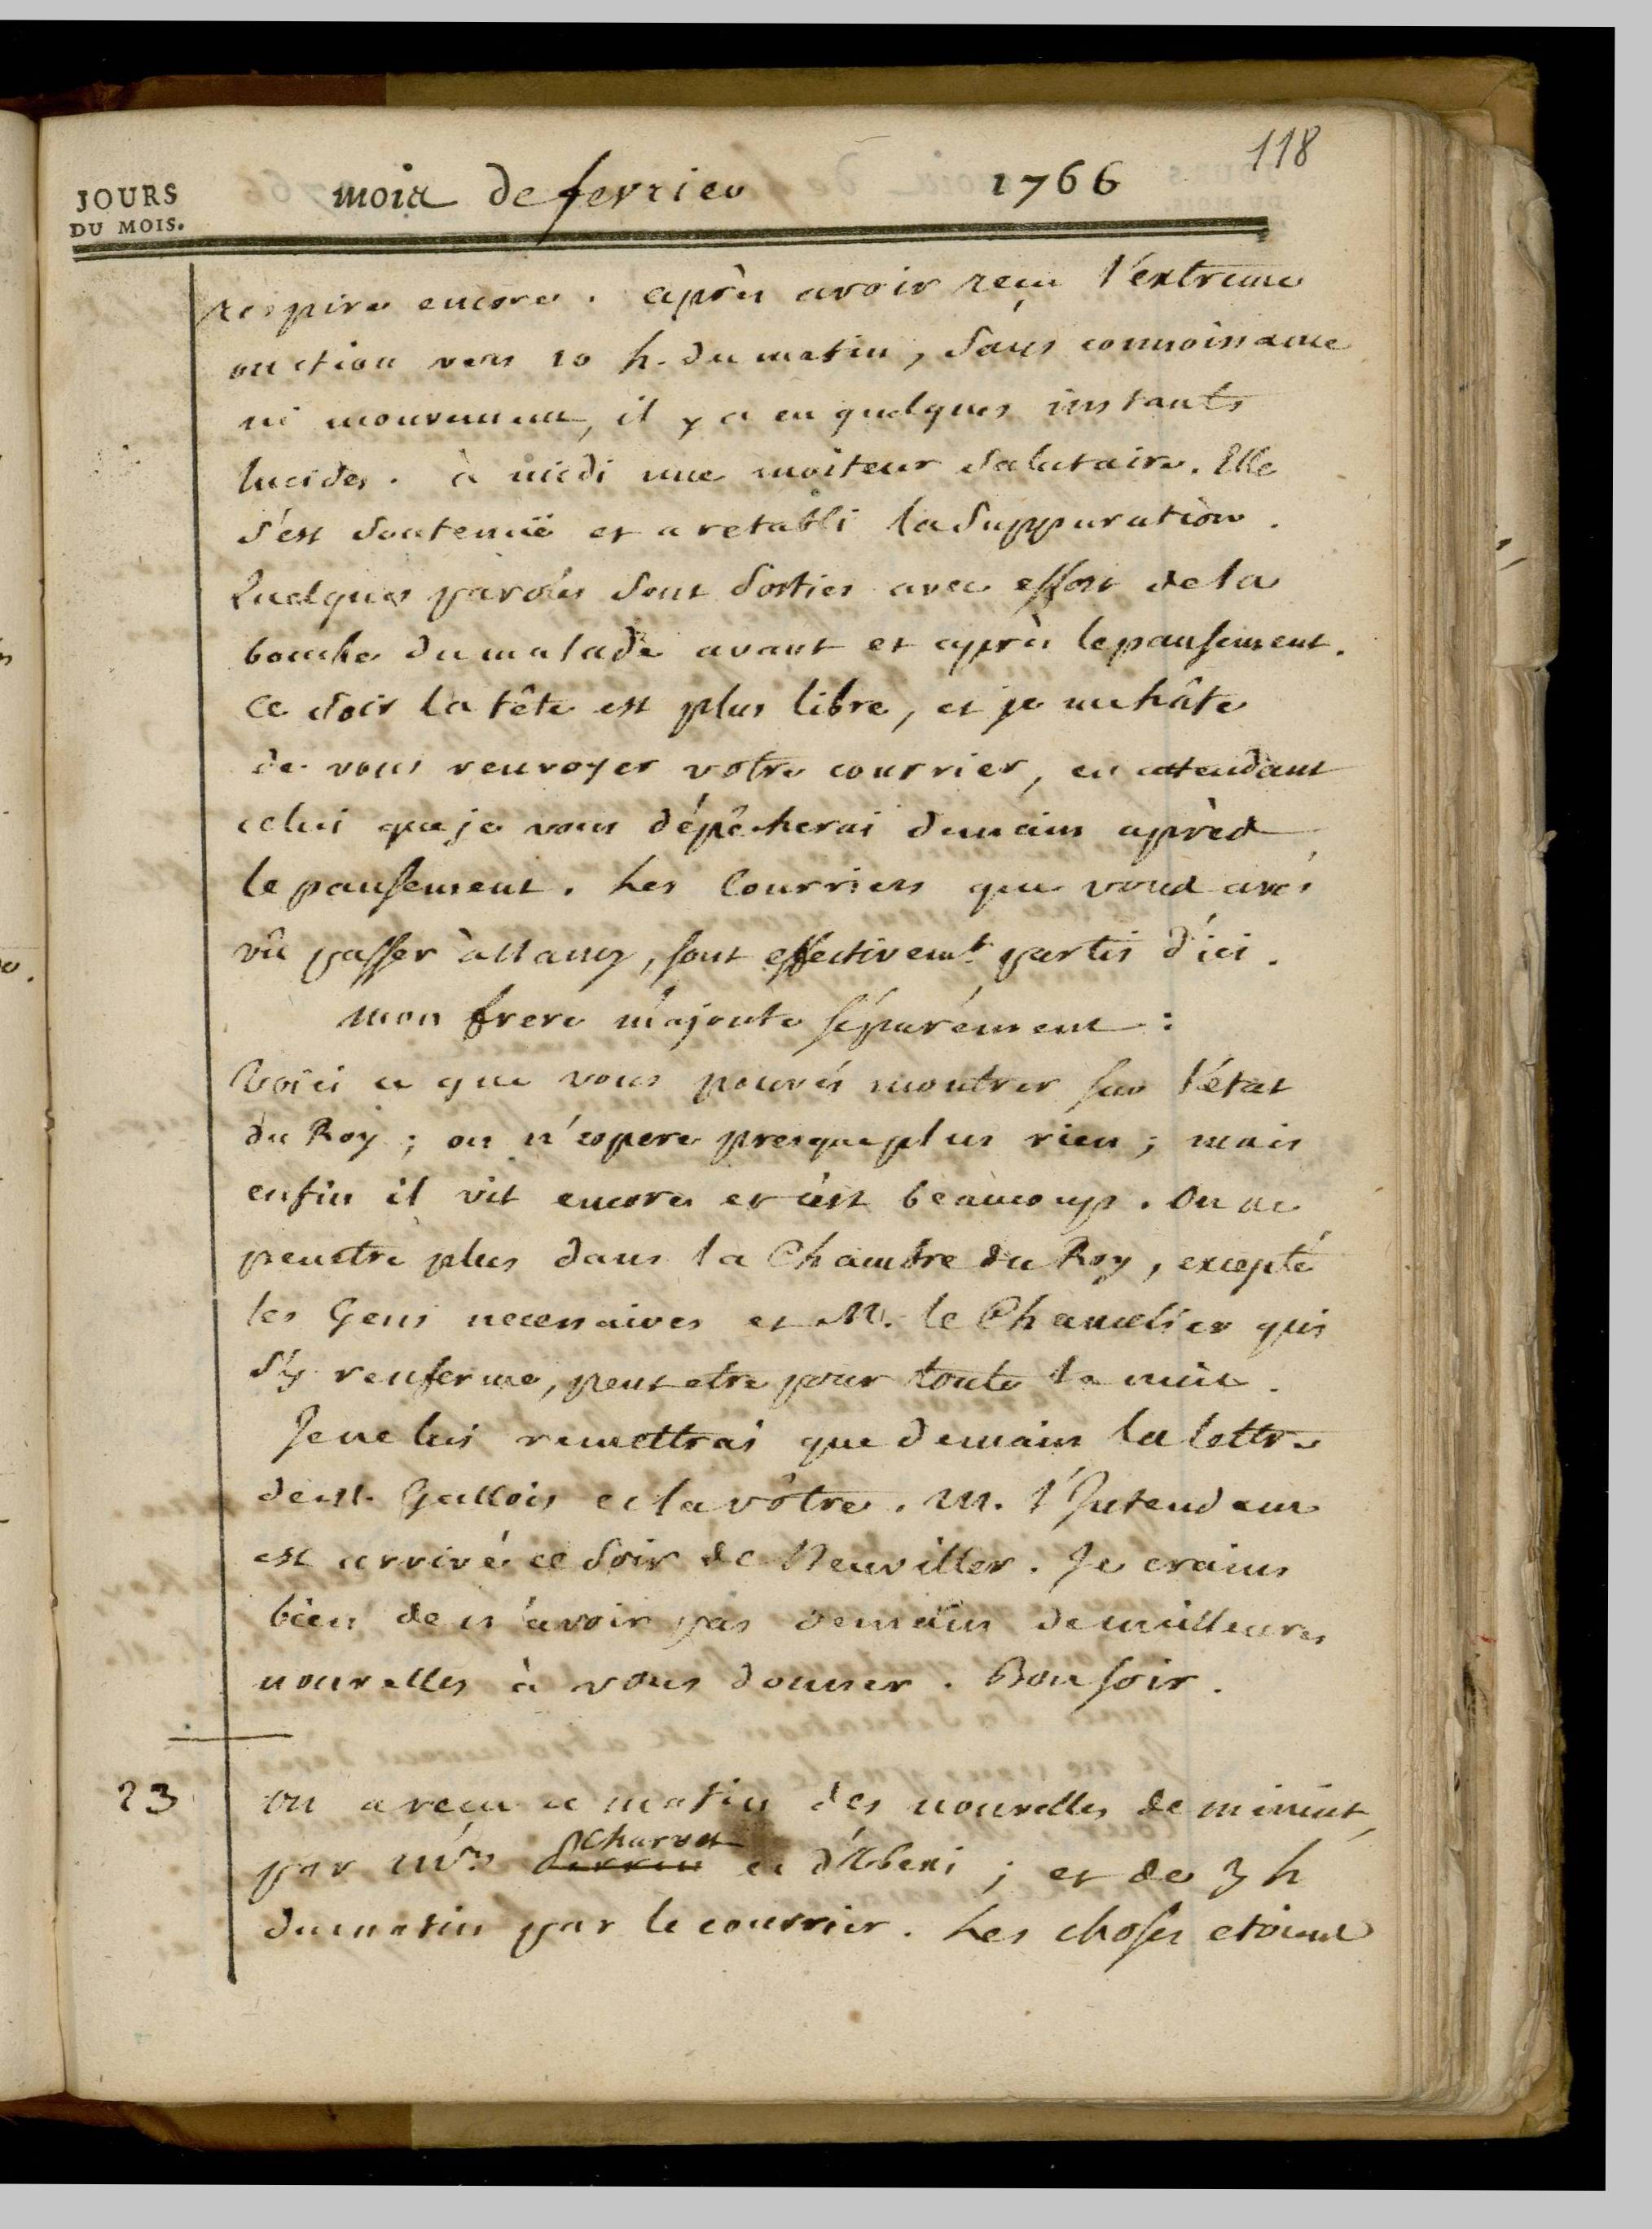 118
JOURS
DU MOIS.
mois de fevrier 1766
respire encore. après avoir reçu l'extreme
onction vers 10 h. du matin, sans connoissance
ni mouvement, il y a eu quelques instants
lucides. à midi une moiteur salutaire. Elle
s'est soutenuë et a retabli la suppuration.
Quelques paroles sont sorties avec effort de la
bouche du malade avant et après le pansement.
Ce soir la tête est plus libre, et je me hâte
de vous renvoyer votre courrier, en attendant
celui que je vous dépêcherai demain après
le pansement. Les Courriers que vous avés
vû passer à Nancy, sont effectivemt. partis d'ici.
mon frere m'ajoute séparément :
Voici ce que vous pouvés montrer sur l'état
du Roy ; on n'espere presque plus rien ; mais
enfin il vit encore et c'est beaucoup. On ne
penetre plus dans la Chambre du Roy, excepté
les Gens necessaires et M. le Chancelier qui
s'y renferme, peut etre pour toute la nuit.
Je ne lui remettrai que demain la lettre
de M. Gallois et la vôtre. M. l'Intendant
est arrivé ce soir de Neuviller. Je crains
bien de n'avoir pas demain de meilleures
nouvelles à vous donner. Bon soir.
23 on a reçu ce matin des nouvelles de minuit,
par Mrs Charvet et d'Alberi ; et de 3 h
du matin par le courrier. Les choses etoient